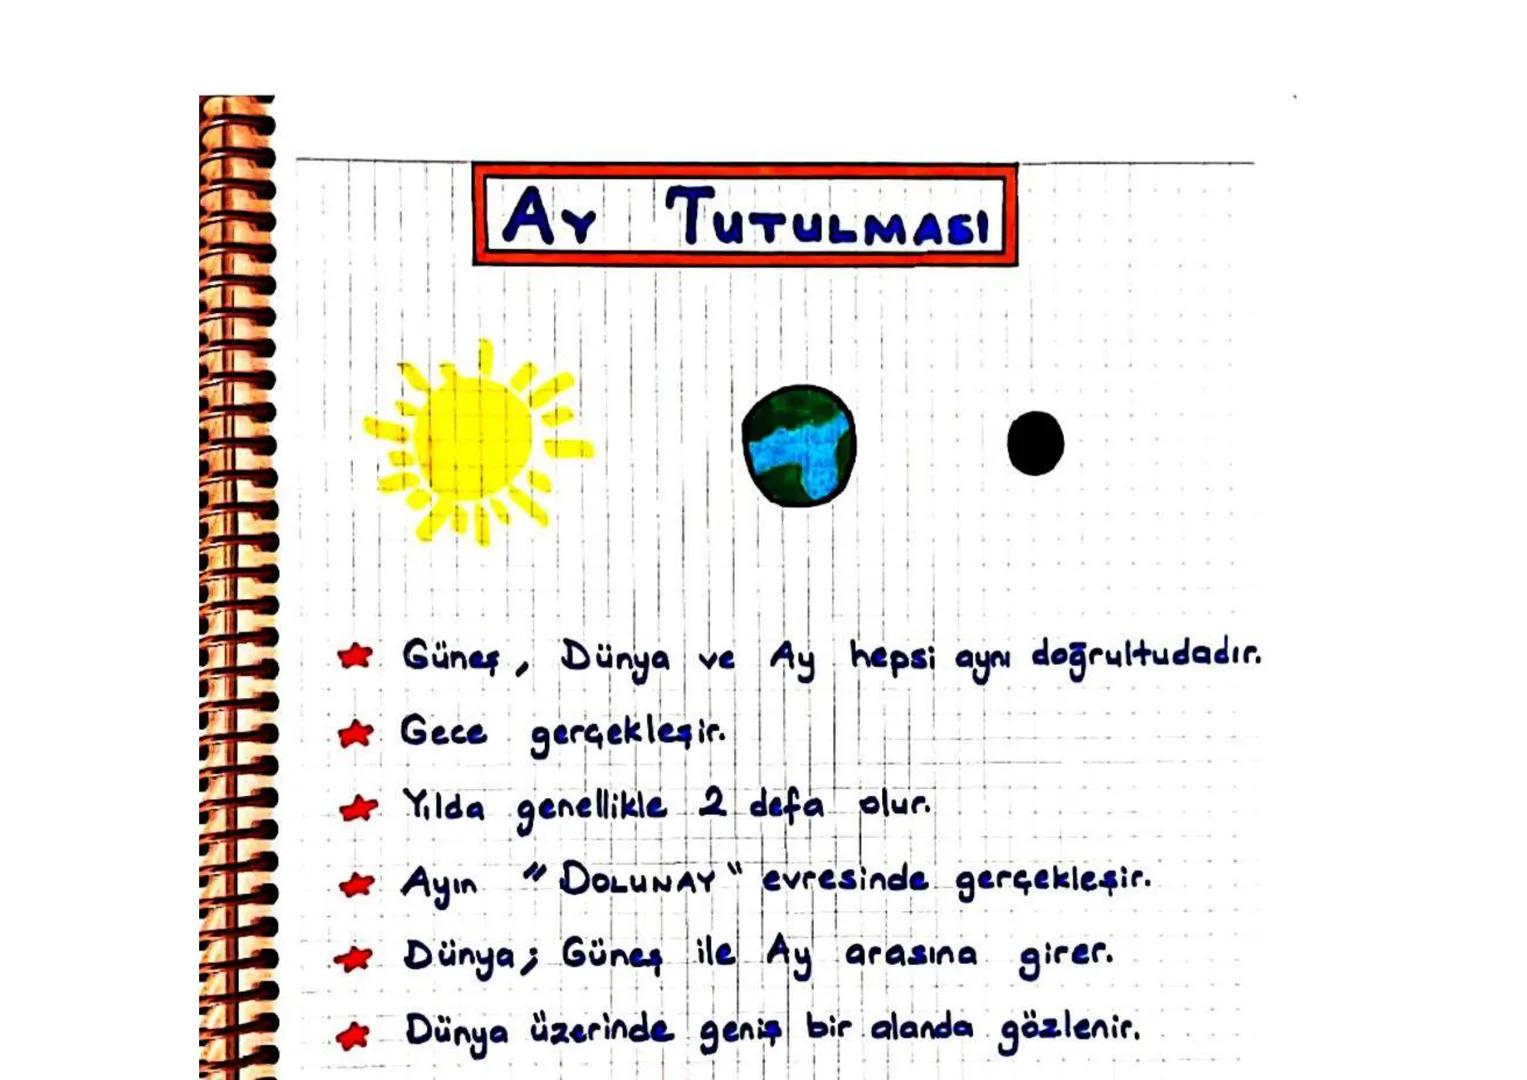 AY TUTULMASI
Güneş, Dünya ve Ay hepsi aynı doğrultudadır.
Gece gerçekleşir.
Yılda genellikle 2 defa olur.
Ayın "DOLUNAY" evresinde gerçekleşir.
Dünya; Güneş ile Ay arasına girer.
Dünya üzerinde geniş bir alanda gözlenir.